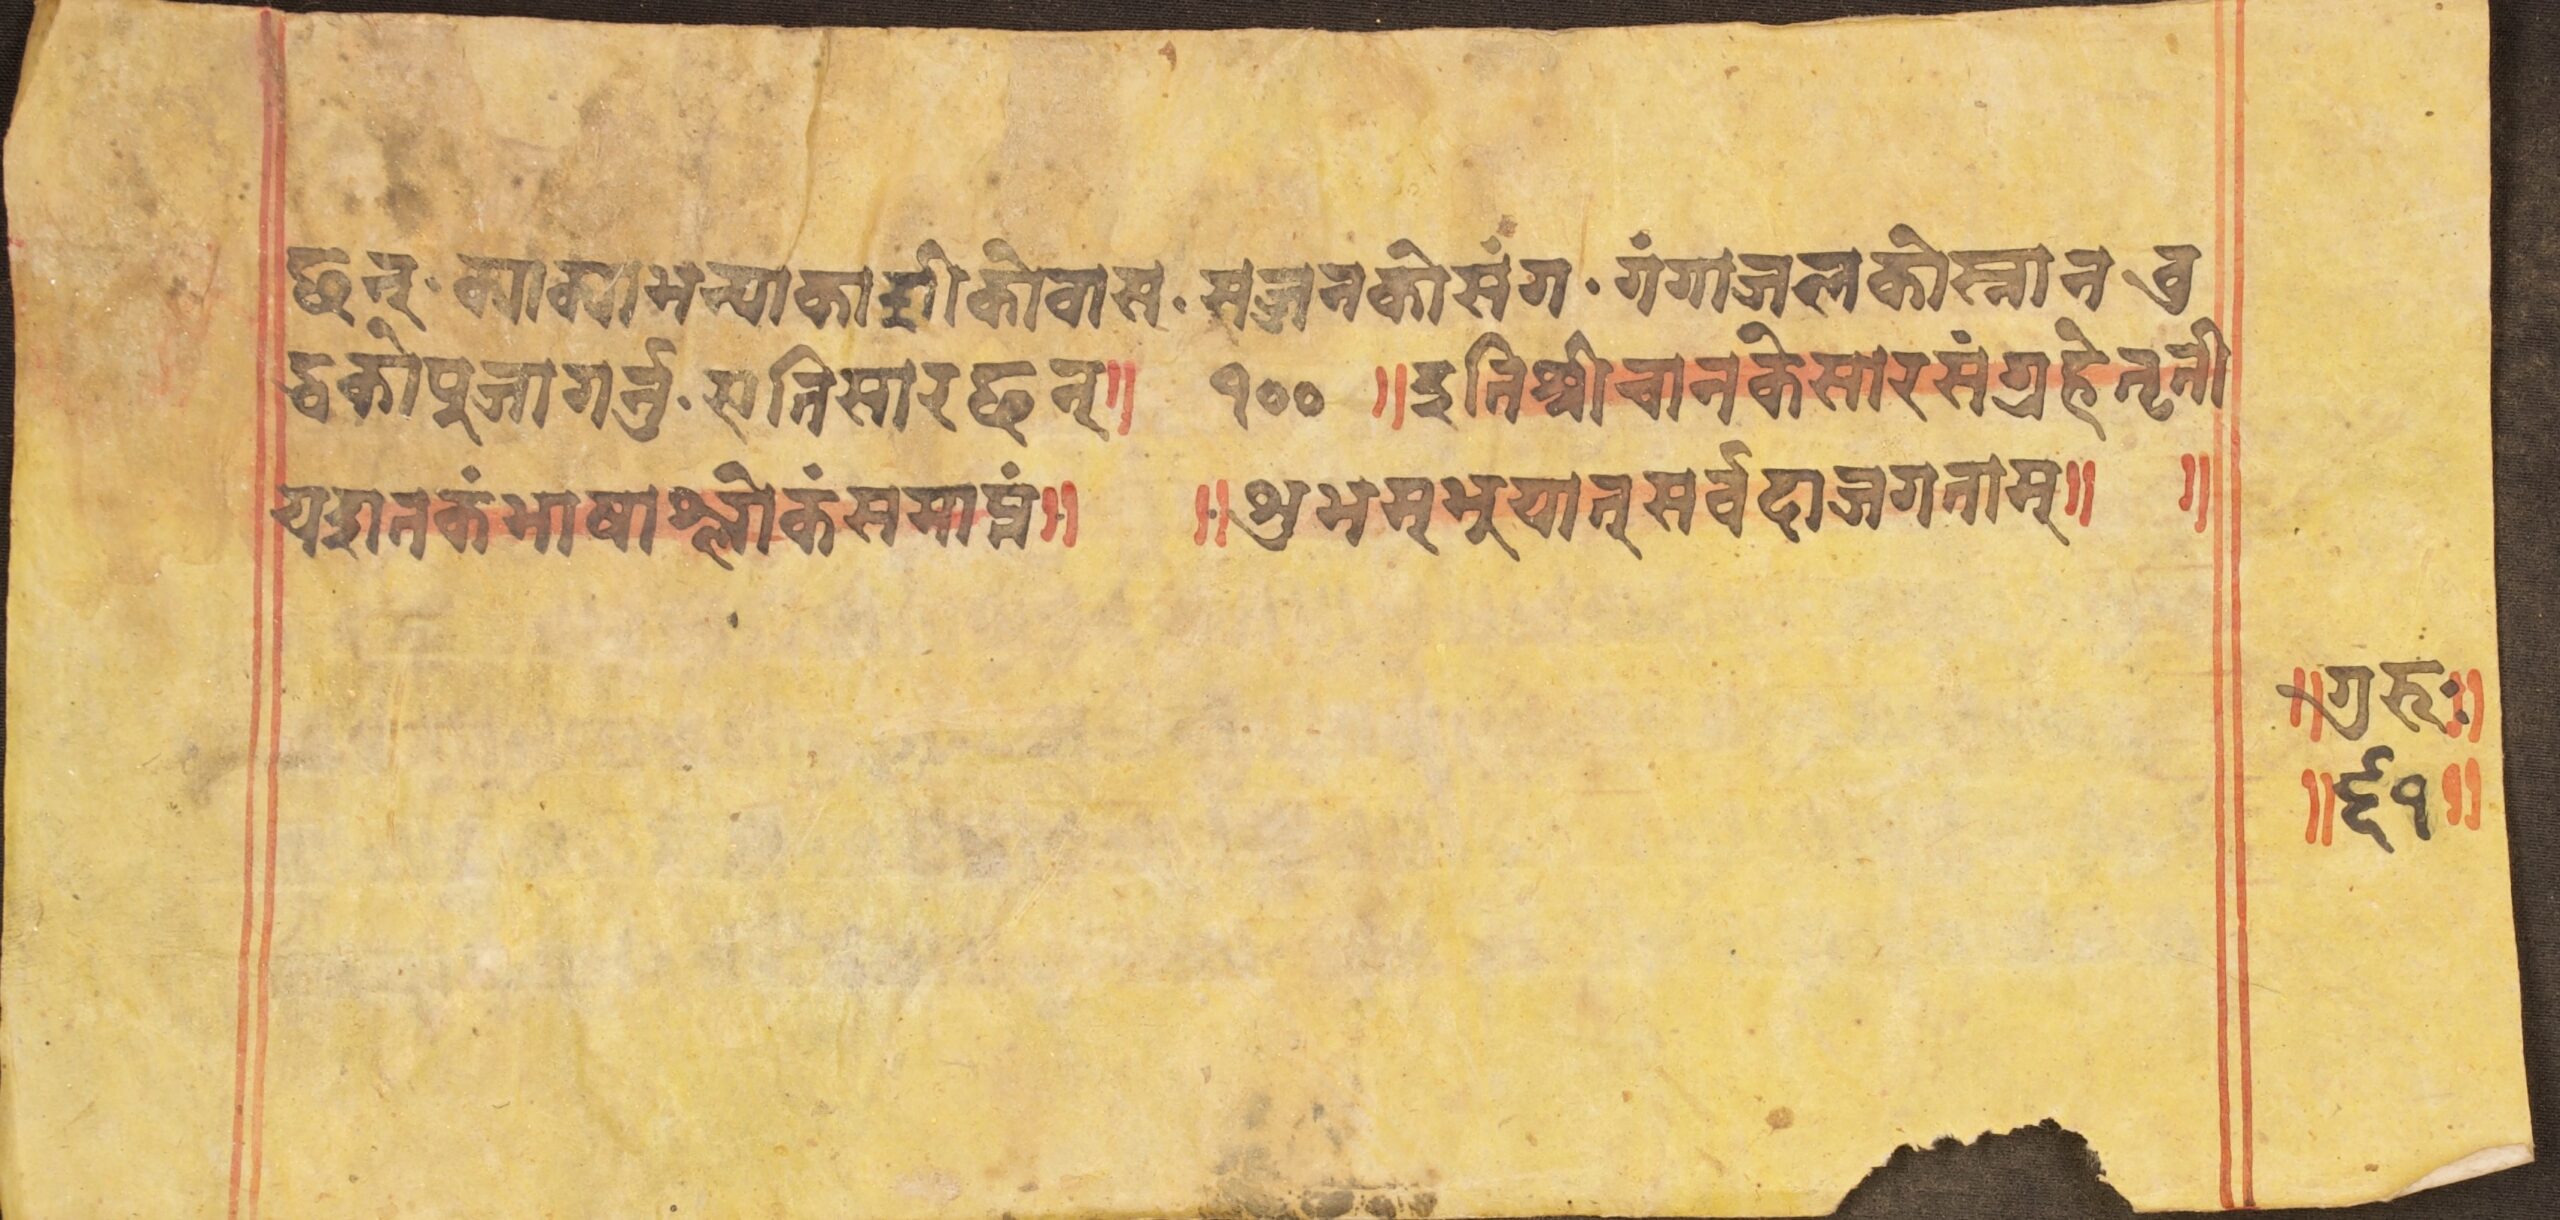 छन्· क्याक्याभन्याकाशीकोवास· सज्जनकोसंग· गंगाजलकोस्नान बु
द्धकोपुजागर्नु· सतिसारछन्॥ १०० ॥इतिश्रीचानकेसारसंग्रहेतृती
यशतकंभाषाश्लोकंसमाप्तं॥ ॥शुभम्भुयात्सर्वदाजगताम्॥ ॥
॥गुरूः॥
॥६१॥